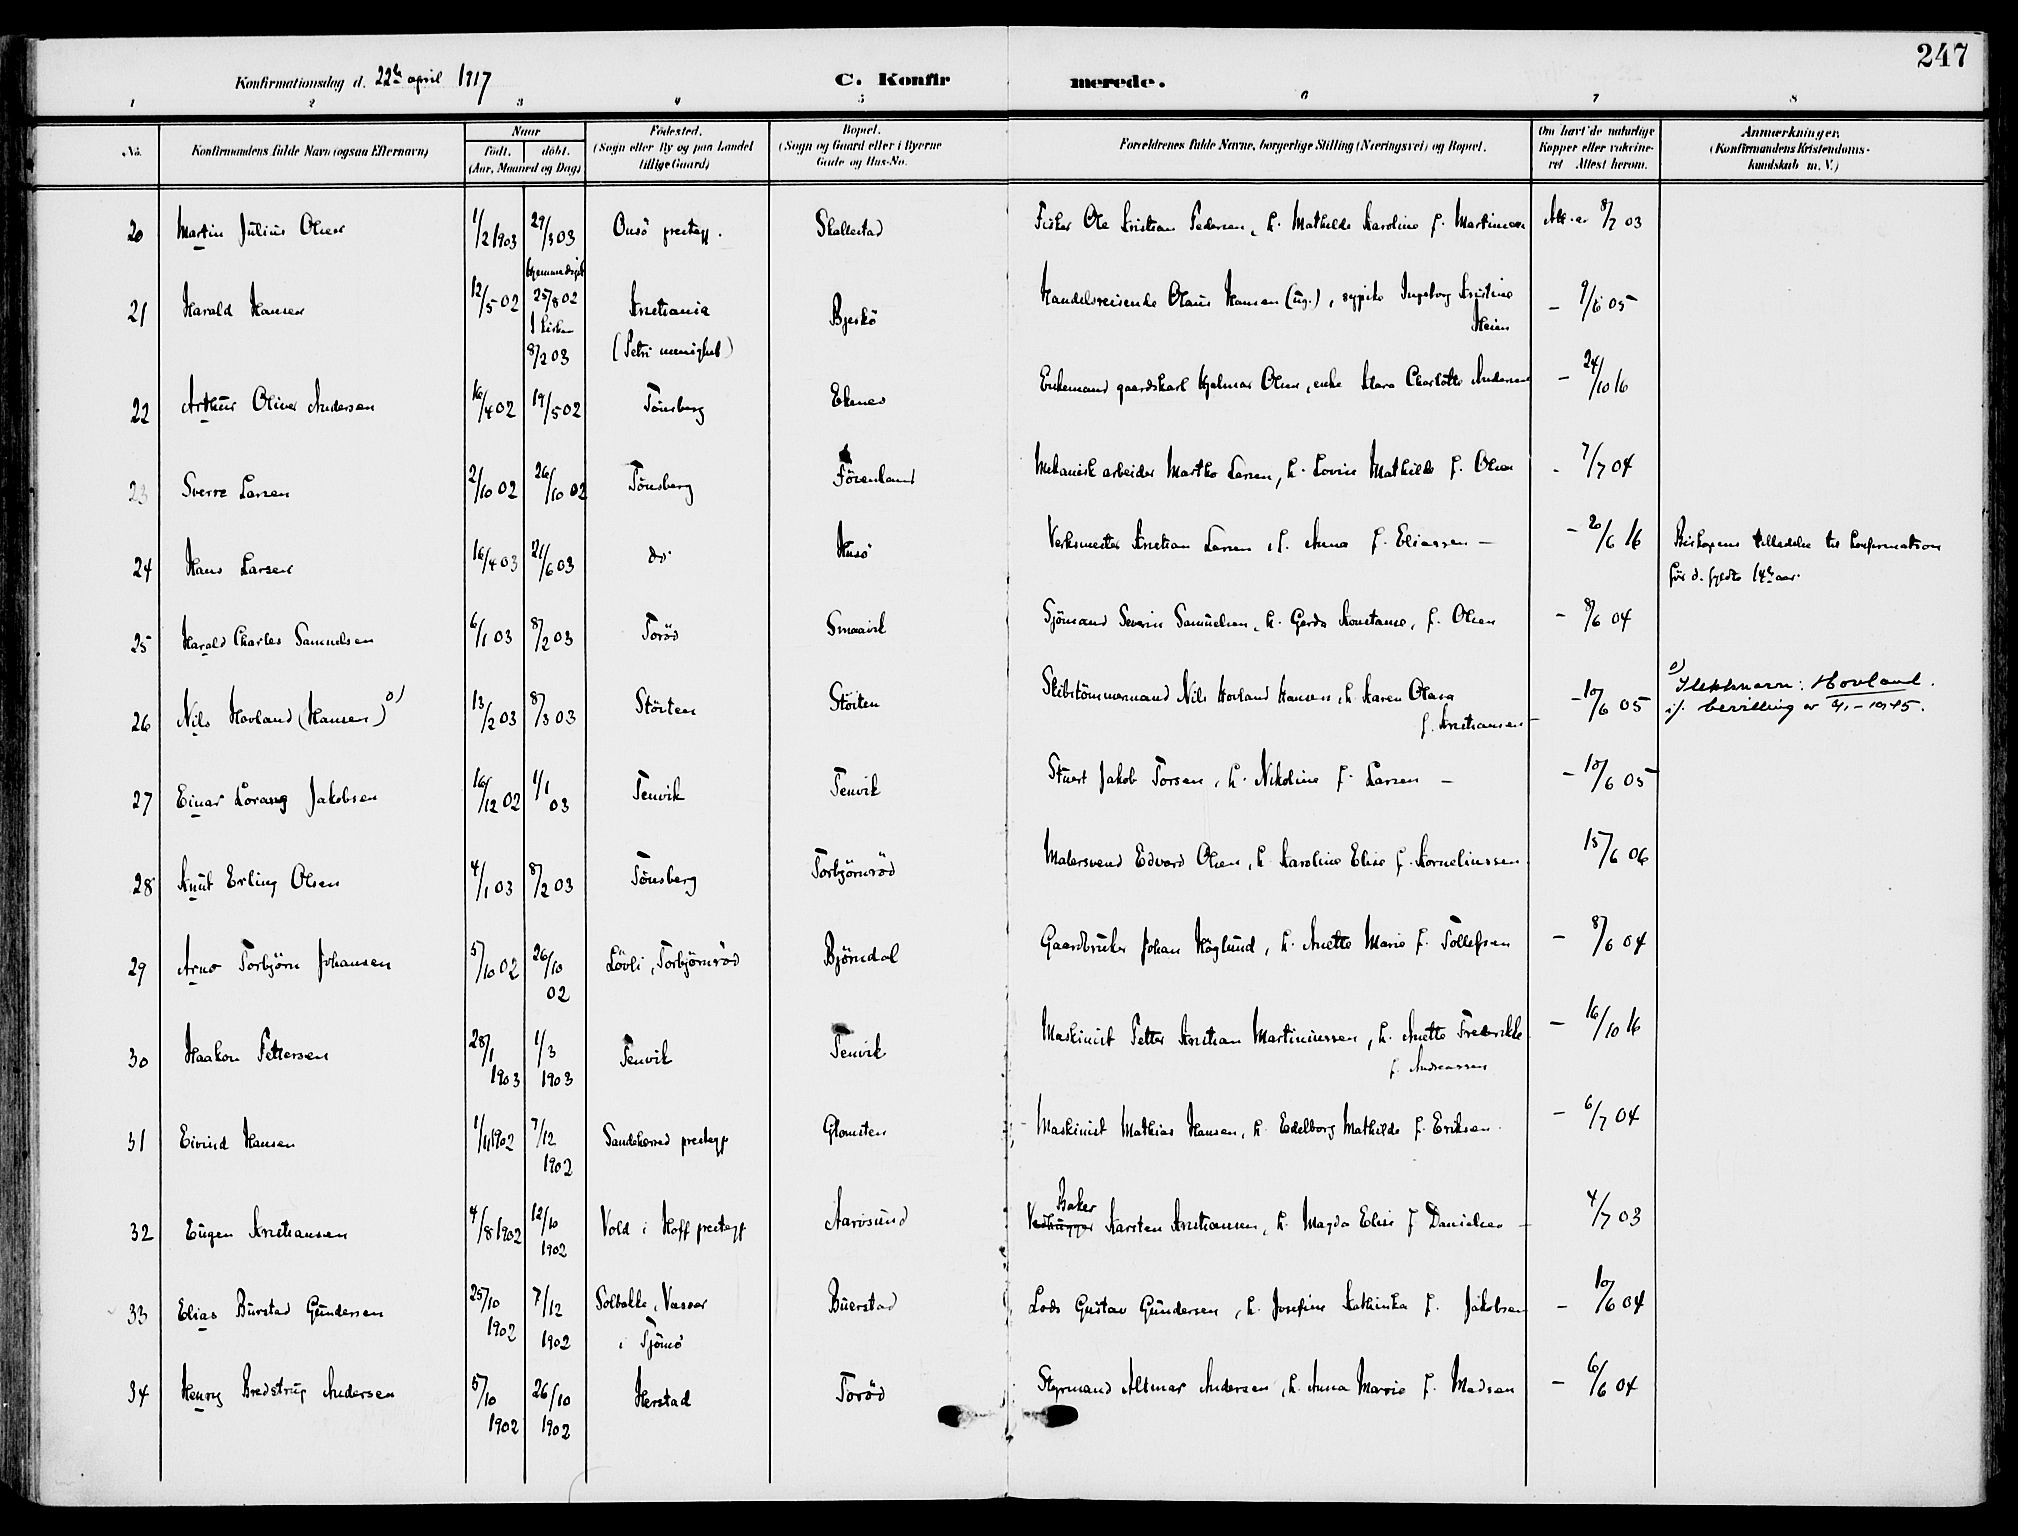 247
Konfirmationsdag d. 22de april 1917 C. Konfirmerede.
1 2 3 4 5 6 7 8
No. Konfirmandens fulde Navn (ogsaa Efternavn) Naar født. døbt. (Aar, Maaned og Dag) Fødested. (Sogn eller By og paa Landet tillige Gaard) Bopæl. (Sogn og Gaard eller i Byerne Gade og Hus-No. Forældrenes fulde Navne, borgerlige Stilling (Næringsvei) og Bopæl. Om havt de naturlige Kopper eller vakcineret Attest herom. Anmærkninger. (Konfirmandens Kristendomskundskab m. V.)
20 Martin Julius Olsen 1/2 1903 29/3 03 Onsö prestegj. Skallestad Fisker Ole Kristian Pedersen, h. Mathilde Karoline f. Martinsen Att. av 8/7 03
21 Harald Hansen 12/5 02 hjemmedøpt 25/8 02 I kirken 8/2 03 Kristiania (Petri menighet) Bjerkö Handelsreisende Olaus Hansen (ug.), sypike Ingeborg Kristine Heien - 9/6 05
22 Arthur Oliver Andersen 16/4 02 19/5 02 Tönsberg Ekenes Enkemand gaardskarl Hjalmar Olsen, enke Klara Charlotte Andersen - 24/10 16
23 Sverre Larsen 2/10 02 26/10 02 Tönsberg Föienland Mekanisk arbeider Larsen, h. Lovise Mathilde f. Olsen - 7/7 04
24 Hans Larsen 16/4 03 21/6 03 do Husö Verksmester Kristian Larsen, h. Anna f. Eliassen - - 20/6 16 Biskopens tilladelse til konfirmation før d. fyldte 14de aar.
25 Harald Charles Samuelsen 6/1 03 8/2 03 Toröd Smaavik Sjömand Severin Samuelsen, h. Gerda Konstance, f. Olsen - 8/6 04
26 Nils Hovland (Hansen)o) 13/2 03 8/3 03 Störten Stöiten Skibstömmermand Nils Hovland Hansen, h. Karen Olava f. Kristiansen - - 10/6 05 o) Slektsnavn: Hovland. if. bevilling av 4/1-1945.
27 Einar Lorang Jakobsen 16/12 02 1/1 03 Tenvik Tenvik Stuert Jakob Torsen, h. Nikoline f. Larsen - - 10/6 05
28 Knut Erling Olsen 4/1 03 8/2 03 Tönsberg Torbjörnröd Malersvend Edvard Olsen, h. Karoline Elise f. Korneliussen 15/6 06
29 Arno Torbjörn Johansen 5/10 02 26/10 02 Lövli, Torbjörnröd Björndal Gaardbruker Johan Höglund, h. Anette Marie f. Tollefsen - 8/6 04
30 Haakon Pettersen 28/1 1903 1/3 1903 Tenvik Tenvik Maskinist Petter Kristian Martiniussen, h. Anette Fredrikke f. Andreassen - 16/10 16
31 Eivind Hansen 1/11 1902 7/12 1902 Sandeherred prestegj Glomsten Maskinist Mathias Hansen, h. Edelborg Mathilde f. Eriksen. - 6/7 04
32 Eugen Kristiansen 4/8 1902 12/10 1902 Vold i Hoff prestegj Aarösund Baker Vedhugger Karsten Kristiansen, h. Magda Elise f Danielsen - 4/7 03
33 Elias Burstad Gundersen 25/10 1902 7/12 1902 Solbakke, Vasser i Tjömö Buerstad Lods Gustav Gundersen, h. Josefine Kathinka f. Jakobsen - 10/6 04
34 Henry Bredstrup Andersen 5/10 1902 26/10 1902 Herstad Toröd Styrmand Altmar Andersen, h. Anna Marie f. Madsen - 6/6 04